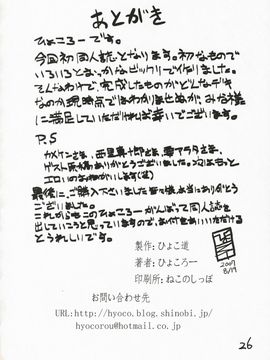 あとがき
ひょころーです。
今回初同人誌となります。初なもので
いろいろとおっかなビックリでイ作りました。
そんなわけで、完成したものがどんなデキ
なのか現時点ではわかりませぬが、みな様
に満足していただければ幸いでございます。
P.S
カメケンさま、西里真十郎さま、零アラタさま、
ゲスト原稿ありがとうございました。次はもっと
エロいのお願いがいします(違)
最後に、ご購入下さいました皆々様本当にありがとう
ございました。
これからもこのひょころーがんばって同人誌を
出していこうと思っていますので、お付き合いいただける
とうれしいです。
2007
8/19
製作：ひょこ道
著者：ひょころー
印刷所：ねこのしっぽ
お問い合わせ先
URL:http://hyoco.blog.shinobi.jp/
hyocorou@hotmail.co.jp
26